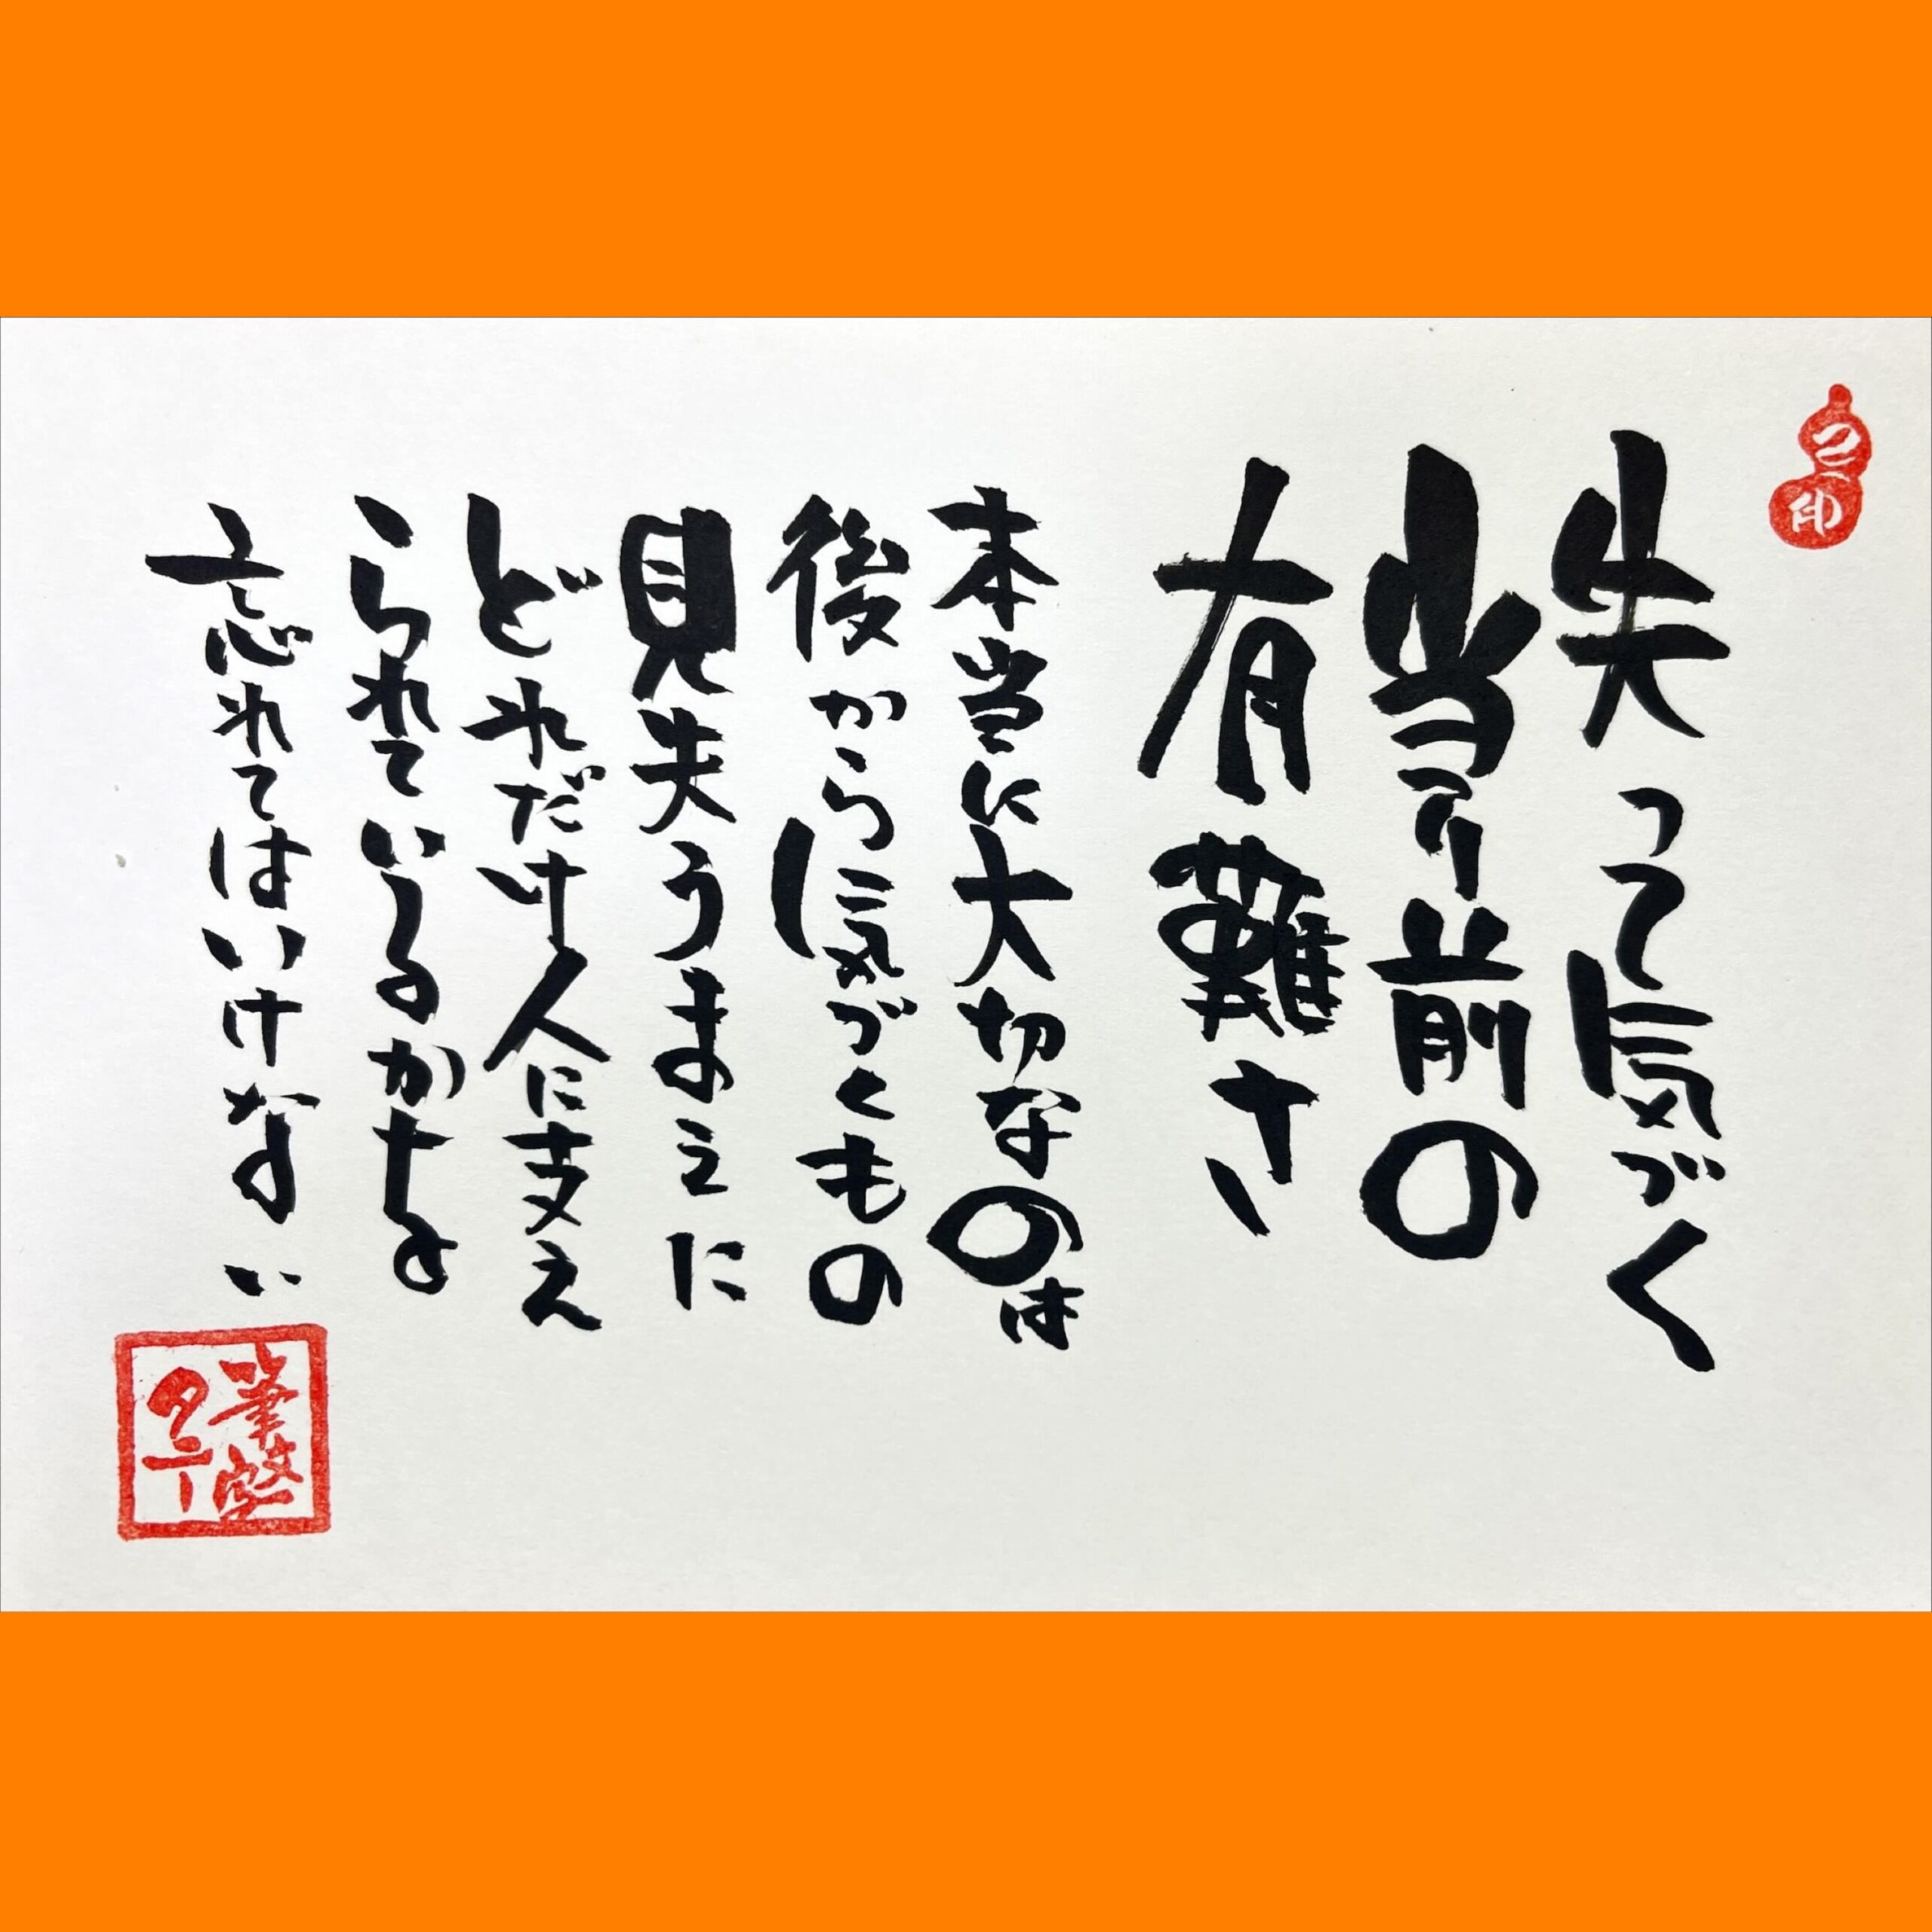 失って気づく
当たり前の
有難さ
本当に大切なのは
後から気づくもの
見失うまえに
どれだけ人に支え
られているかを
忘れてはいけない
筆文字
タニー